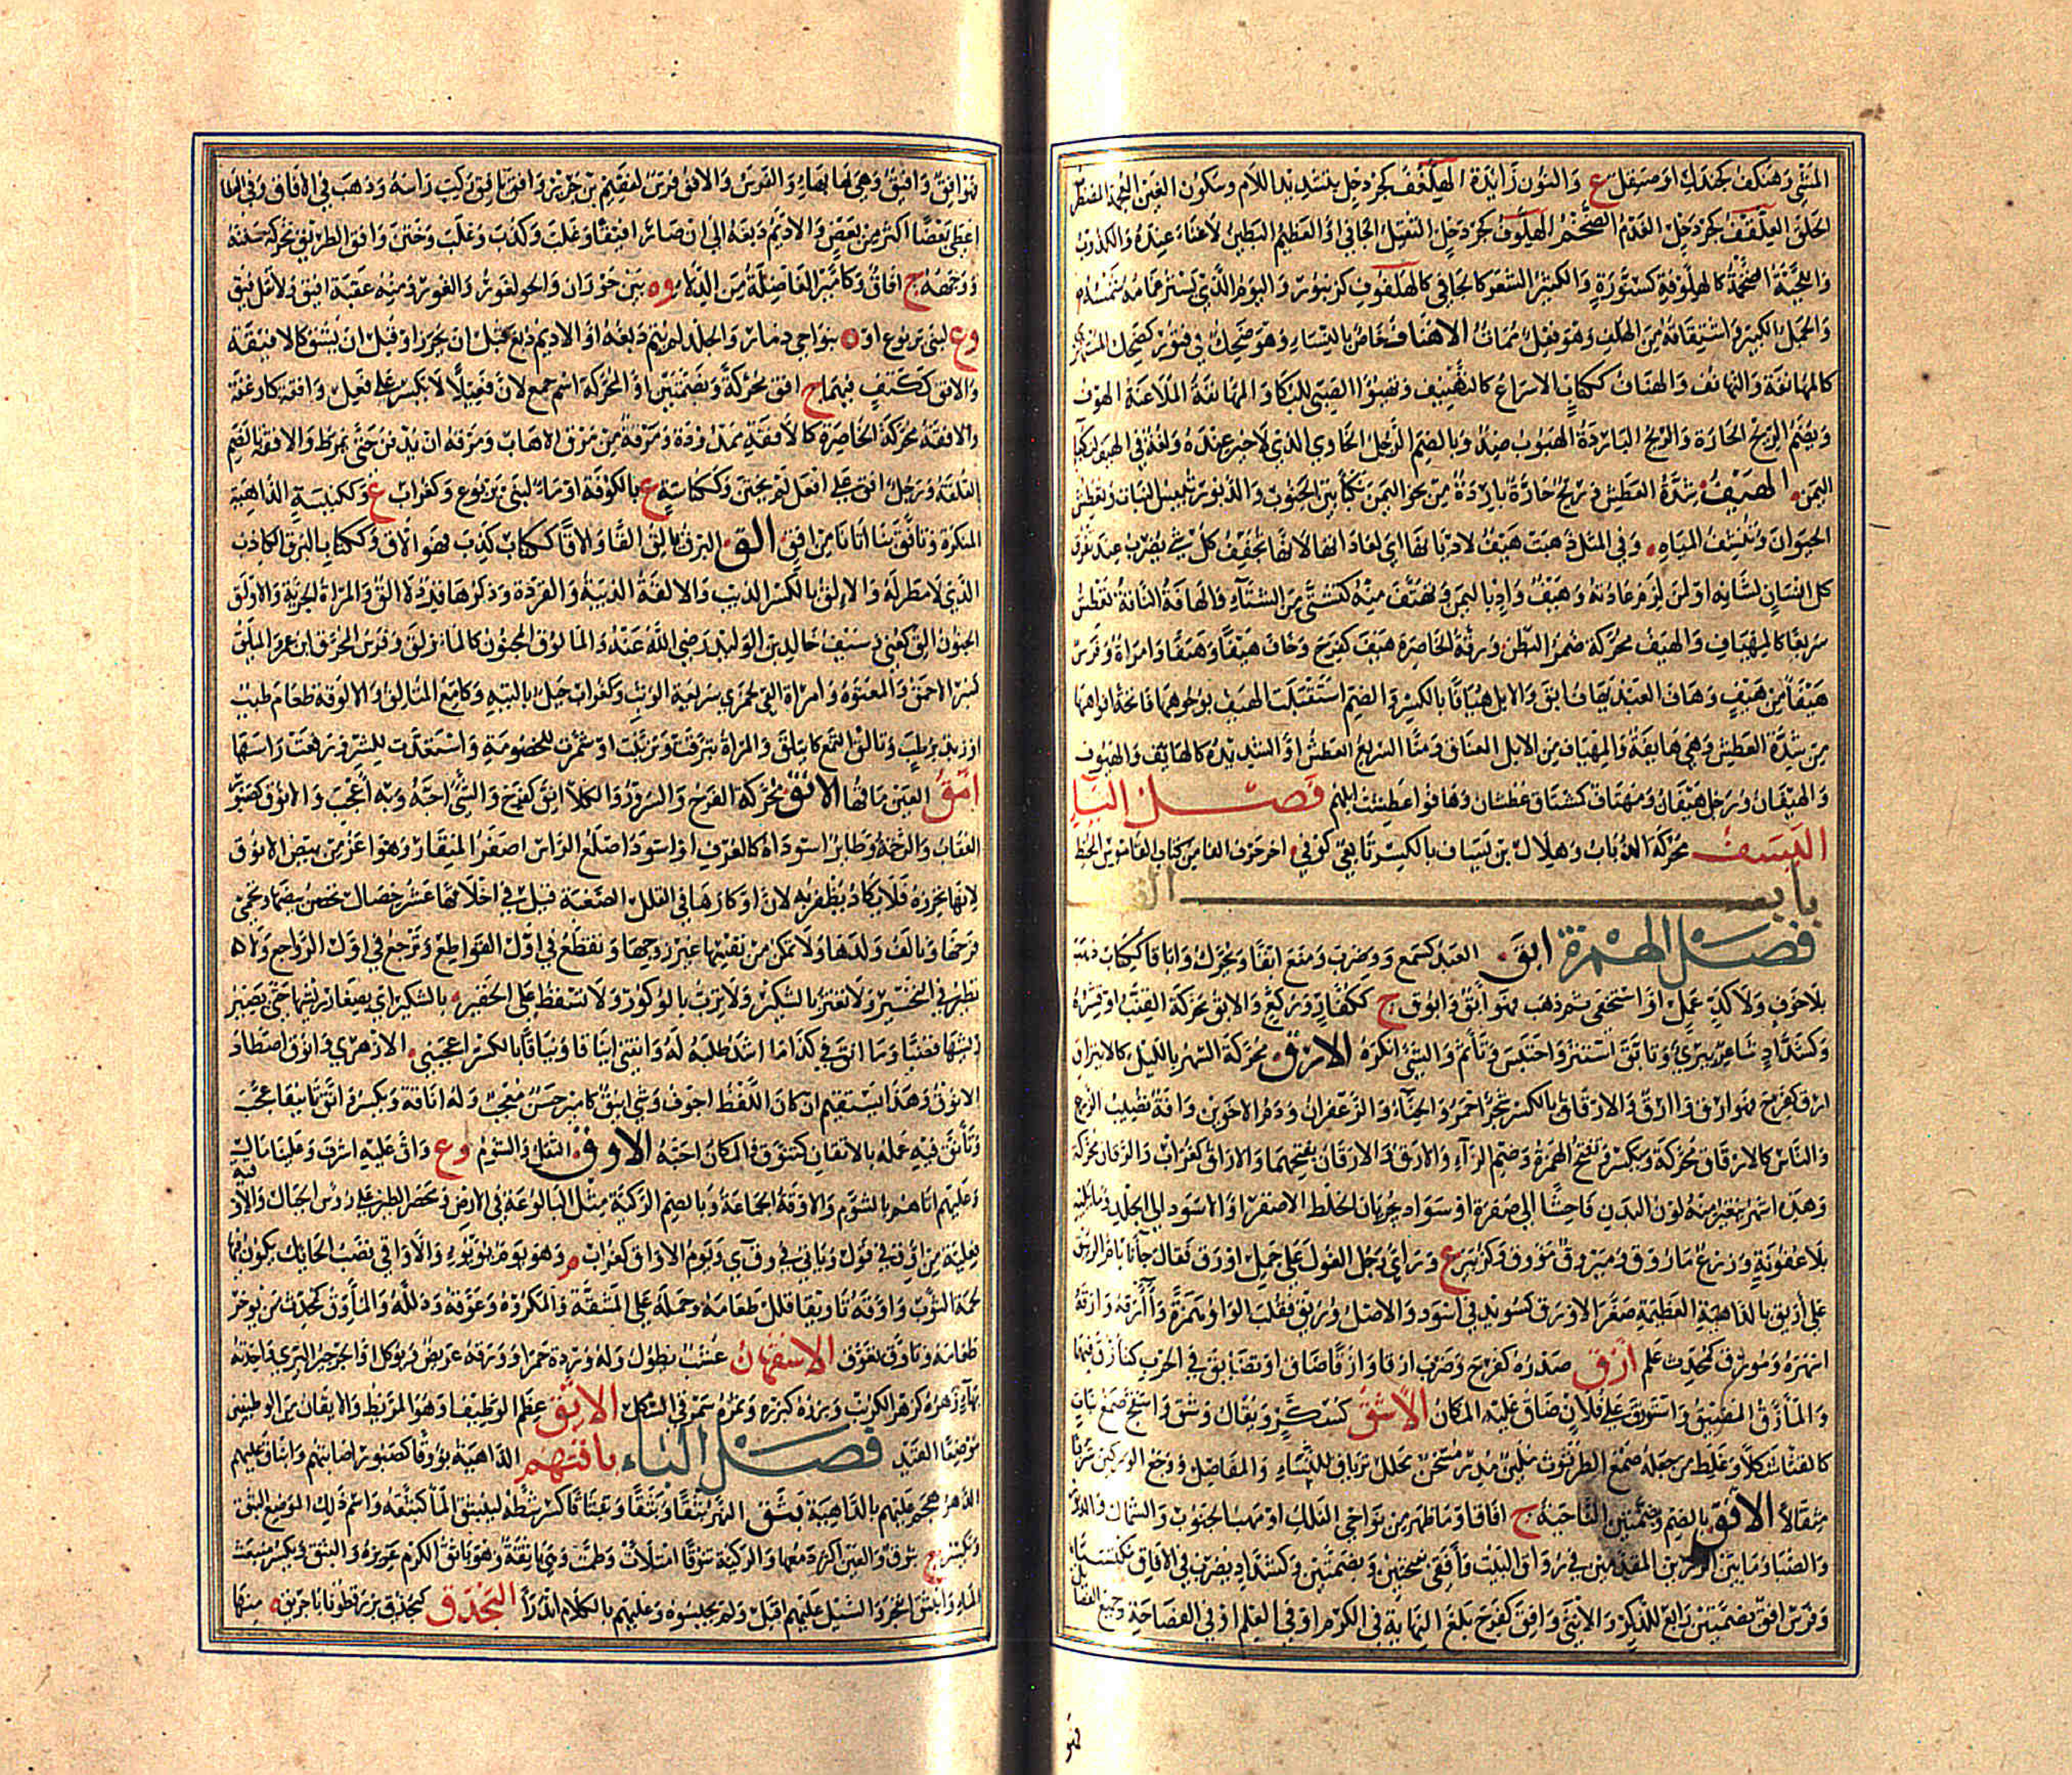 المشي وهنكف كجندل او صيقل ع والنون زايدة الهلغف كجردحل بتشديد اللام وسكون الغين المعجمة المضطرب
الخلق العلفف كجردحل الفدم الضخم الهلوف كجردحل الثقيل الجافي او العظيم البطين لا غناء عنده والكذوب
واللحية الضخمة كالهلوفة كسنورة والكثير الشعر كالجافي كالهلفوف كزنبور واليوم الذي يستر غمامه شمسه
والجمل الكبير واشتقاقه من الهلف وهو فعل ممات الاهناف خاص بالنساء وهو ضحك في فتور كضحك المستهزئ
كالمهانفة والتهانف والهناف ككتاب الاسراع كالتهنيف وتهيؤ الصبي للبكا والمهانفة الملاعبة الهوف
ويضم الريح الحارة والريح الباردة الهبوب ضد وبالضم الرجل الخاوي الذي لا خير عنده ولغة في الهيف نكباء
اليمن الهيف شدة العطش وريح حارة باردة من نحو اليمن نكبا بين الجنوب والدبور تيبس النبات وتعطش
الحيوان وتنشف المياه وفي المثل هبت هيف لاديانها اي لعاداتها لانها تجفف كل شي يضرب عند تفرق
كل انسان لشانه او لمن لزم عادته وهيف واد باليمن وتهيف منه كتشتى من الشتاء والهافة الناقة تعطش
سريعا كالمهياف والهيف محركة ضمر البطن ورقة الخاصرة هيف كفرح وخاف هيفا وهيفا وامراة وفرس
هيفا من هيف وهاف العبد يهاف ابق والابل هيافا بالكسر والضم استقبلت الهيف بوجوهها فاتحة افواهها
من شدة العطش وهي هايفة والمهياف من الابل العناق ومنا السريع العطش او الشديده كالهايف والهيوف
والهيفان ورجل هيفان ومهتاف كمشتاق عطشان وهافوا عطشت ابلهم فصـل اليـاء
اليسف محركة الذباب وهلال بن يساف بالكسر تابعي كوفي اخر حرف الفا من كتاب القاموس المحيط
باب القاف
فصـل الهمزة ابق العبد كسمع وضرب ومنع ابقا ويحرك واباقا ككتاب ذهب
بلا خوف ولا كد عمل او استخفى ثم ذهب فهو ابق وابوق ج ككفار وركع والابق محركة القنب او قشره
وكشداد شاعر دبيري وتابق استتر واحتبس وتاثم والشي انكره الارق محركة السهر بالليل كالايتراق
ارق كفرح فهو ارق وارق والارقان بالكسر شجر احمر والحناء والزعفران ودم الاخوين وافة تصيب الزرع
والناس كالارقان محركة وبكسرتين وبفتح الهمزة وضم الراء والارق والارقان بفتحهما والاراق كغراب واليرقان محركة
وهذه اشهر يتغير منه لون البدن فاحشا الى صفرة او سواد بجريان الخلط الاصفر او الاسود الى الجلد وما يليه
بلا عفونة وزرع ماروق وميروق موروق وكزبير ع وراي رجل الغول على جمل اورق فقال جانا بام الربيق
على اريق بالداهية العظيمة صغر الاورق كسويد في اسود والاصل وريق فقلب الواو همزة وأأرقه وارقه
اسهره ومؤرق كمحدث علم ازق صدره كفرح وضرب ازقا وازقا ضاق او تضايق في الحرب كتازق فيها
والمازق المضيق واستوزق على فلان ضاق عليه المكان الاشق كسكر ويقال وشق واشج صمغ نبات
كالقثا شكلا وغلط من جعله صمغ الطرثوث ملين مدر مسخن محلل ترياق للنساء والمفاصل ووجع الوركين شربا
مثقالا الافق بالضم وبضمتين الناحية ج افاق او ما ظهر من نواحي الفلك او مهب الجنوب والشمال والدبور
والصبا وما بين الزرين المقدمين في رواق البيت وأفقي بفتحتين وبضمتين وكشداد يضرب في الافاق مكتسبا
وفرس افق بضمتين رايع للذكر والانثى وافق كفرح بلغ النهاية في الكرم او في العلم او في الفصاحة وجميع الفضائل
فهو افق وافيق وهي بهاء والفرس والافق فرس لفقيم بن جرير وافق يافق ركب راسه وذهب في الافاق وفي العطا
اعطى بعضا اكثر من بعض والاديم دبغه الى ان صار افيقا وغلب وكذب وغلب وختن وافق الطريق محركة سننه
ووجهه ج افاق وكامير الفاضلة من الدلاء و ه بين حوران والغور ومنه عقبة افيق ولا تقل فيق
و ع لبني يربوع او ه بنواحي ذمار والجلد لم يتم دبغه او الاديم دبغ قبل ان يخرز او قبل ان يشق كالافيقة
والافق ككتف فيهما ج افق محركة وبضمتين او المحركة اسم جمع لان فعيلا لا يكسر على فعل وافقة كارغفة
والافقة محركة الخاصرة كالافقة ممدودة ومرقة من مرق الاهاب ومرقه ان يدفن حتى يمرط والافقة بالضم
القلفة ورجل افق على افعل لم يختن وككناسة ع بالكوفة او ماء لبني يربوع وكغراب ع وككنيسة الداهية
المنكرة وتافق بنا اتانا من افق الق البرق يالق القا والاقا ككتاب كذب فهو الاق وككتاب البرق الكاذب
الذي لا مطر له والالق بالكسر الذيب والالقة الذيبة والقردة وذكرها قرد لا الق والمراة الجرية والاولق
الجنون الق كعني وسيف خالد بن الوليد رضي الله عنه والمالوق المجنون كالمؤلق وفرس المحرق ابن عمرو المئلق
كمنبر الاحمق والمعتوه وامراة القى كجمزى سريعة الوثب وكغراب جبل بالتيه وكامع المتالق والالوقة طعام طيب
او زبد برطب وتالق البرق التمع كايتلق والمراة تبرقت وتزينت او شمرت للخصومة واستعدت للشر ورفعت راسها
امق العين ماقها الانق محركة الفرح والسرور والكلا انق كفرح والشي احبه وبه اعجب والانوق كصبور
العقاب والرخمة وطاير اسود له كالعرف او اسود اصلع الراس اصفر المنقار وهو اعز من بيض الانوق
لانها تحرزه فلا يكاد يظفر به لان اوكارها في القلل الصعبة قيل في اخلاقها عشر خصال تحضن بيضها وتحمي
فرخها وتالف ولدها ولا تمكن من نفسها غير زوجها وتقطع في اول القواطع وترجع في اول الرواجع ولا
تطير في التحسير ولا تغتر بالشكير ولا ترب بالوكور ولا تسقط على الجفير بالشكير اي بصغار ريشها حتى يصير
ريشها قصبا وما انقه في كذا ما اشد طلبه له وانقني ايناقا ونياقا بالكسر اعجبني الازهري وانوق اصطاد
الانوق وهذا يستقيم ان كان اللفظ اجوف وشي انيق كامير حسن معجب وله اناقة ويكسر وانق تانيقا عجب
وتانق فيه عمله بالاتقان كتنوق والمكان احبه الاوق الثقل والشوم و ع واق عليه اشرف وعلينا مال
وعليهم اتاهم بالشوم والاوقة الجماعة وبالضم الركية مثل البالوعة في الارض ومحضن الطير على رؤس الجبال والاوقية
فعلية من اوق في قول وياتي في وق ي ويوم الاواق كغراب م وهو يوم يؤيؤ والاواقي قصب الحايك يكون فيها
لحمة الثوب واوقه تاويقا قلل طعامه وحمله على المشقة والمكروه وعوقه وذلله والماوق كمحدث من يوخر
طعامه وتاوق تعوق الايهقان عشب يطول وله وردة حمرا وورقه عريض ويوكل او الجرجير البري واحدته
بهاء زهره كزهر الكرنب وبزره كبزره وثمره سرمقي الشكل الايق عظم الوظيف او هو المريط والايقان من الوظيفين
موضعا القيد فصـل الباء باقتهم الداهية بؤوقا كصبور اصابتهم وانباق عليهم
الدهر هجم عليهم بالداهية بثق النهر بثقا وبثقا وتبثاقا كسر شطه لينبثق الما كبثقه واسم ذلك الموضع البثق
ويكسر ج بثوق والعين اسرع دمعها والركية بثوقا امتلات وطمت وهي باثقة وهو باثق الكرم غزيره والبثق ويكسر منبعث
الماء وانبثق انفجر والسيل عليهم اقبل ولم يحسبوه وعليهم بالكلام اندرا البخدق كجخذب بزر قطونا باخريق منها